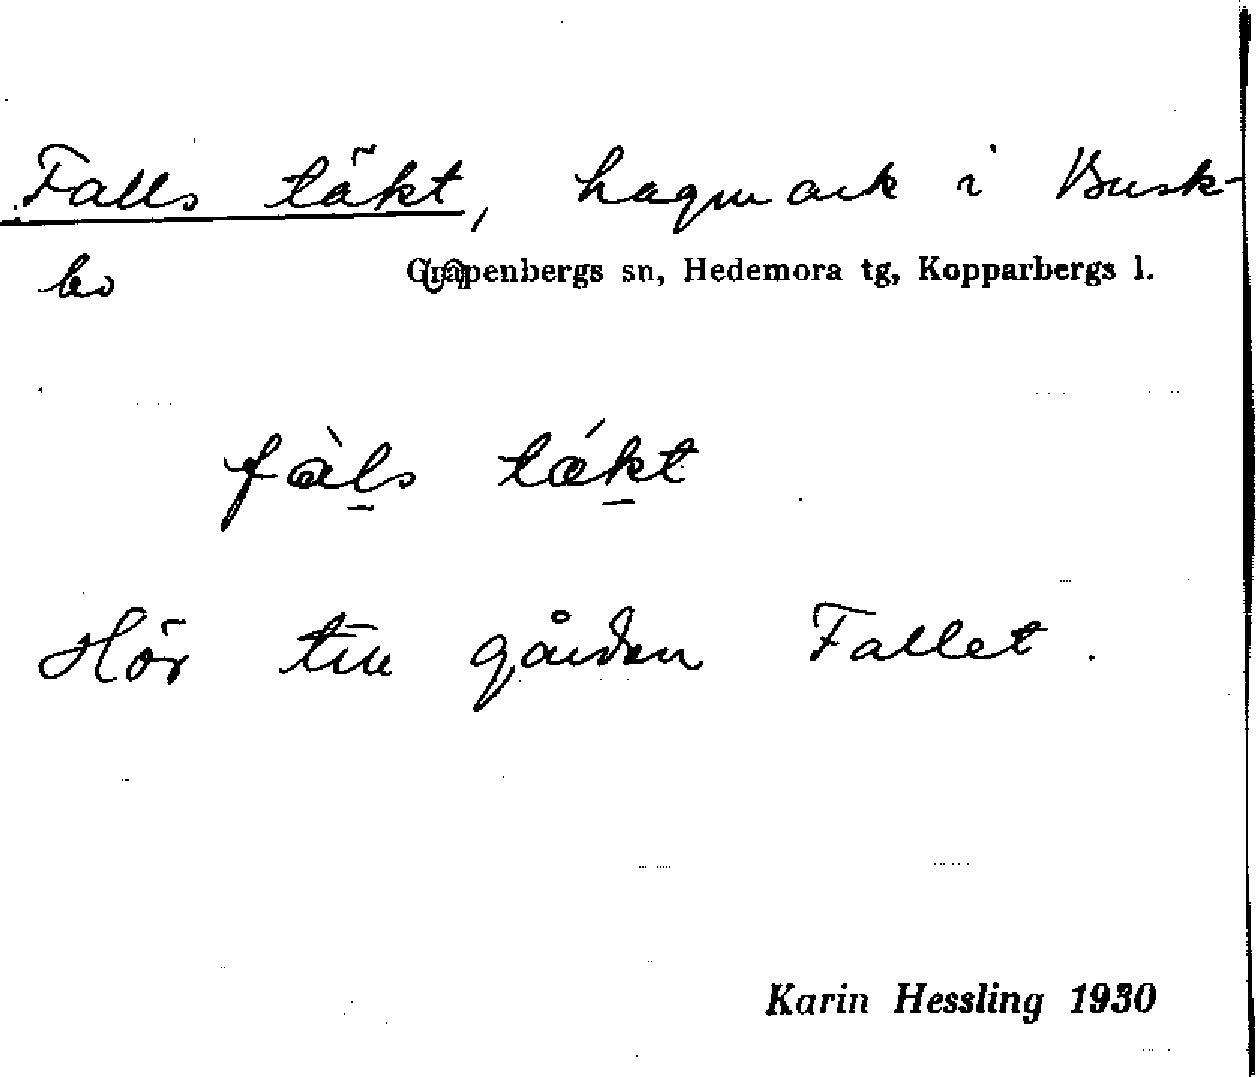 Falls täkt, hagmark i Busk-
bo
Grapenbergs sn, Hedemora tg, Kopparbergs l.
fàl̲s tǽk̲t
Hör till gården Fallet.
Karin Hessling 1930